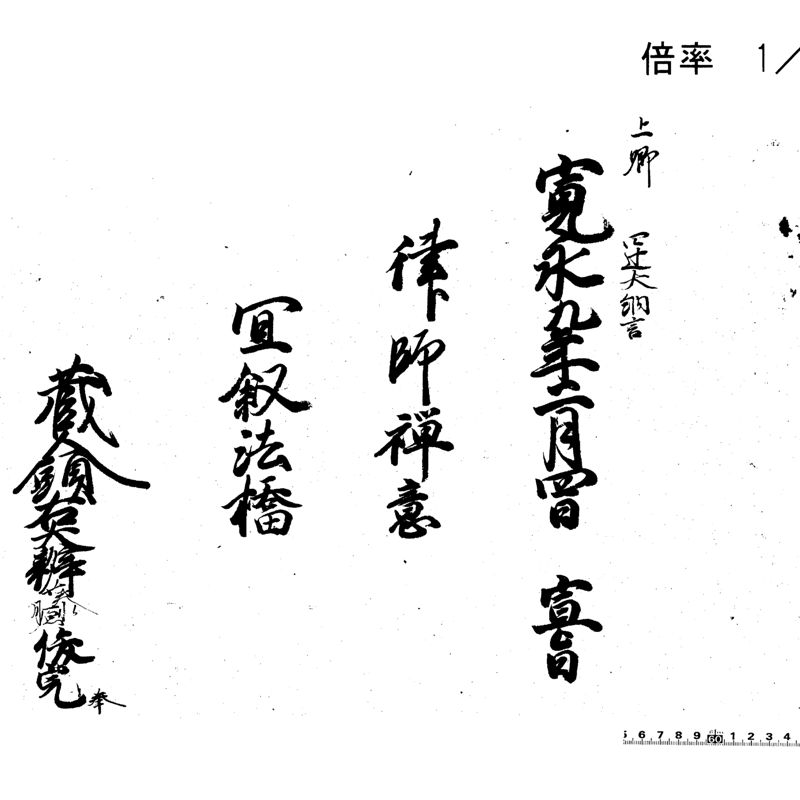 倍率 1/
上卿 四辻大納言
寛永九年二月四日 宣旨
律師禅意
宜叙法橋
蔵人頭右大辨藤原俊完奉
6 7 8 9 60 1 2 3 4